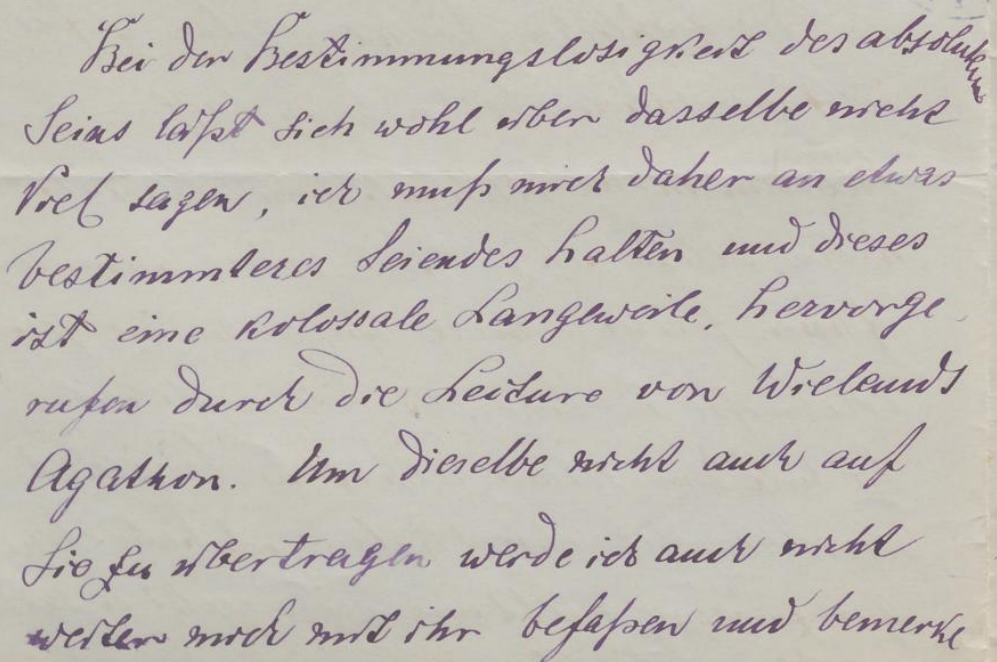 Bei der Bestimmungslosigkeit des absoluten
Seins läßt sich wohl über dasselbe nicht
Viel sagen, ich muß mich daher an etwas
bestimmteres Seiendes halten und dieses
ist eine kolossale Langeweile, hervorge
rufen durch die Lecture von Wielands
Agathon. Um dieselbe nicht auch auf
Sie zu übertragen werde ich auch nicht
weiter mich mit ihr befaßen und bemerke